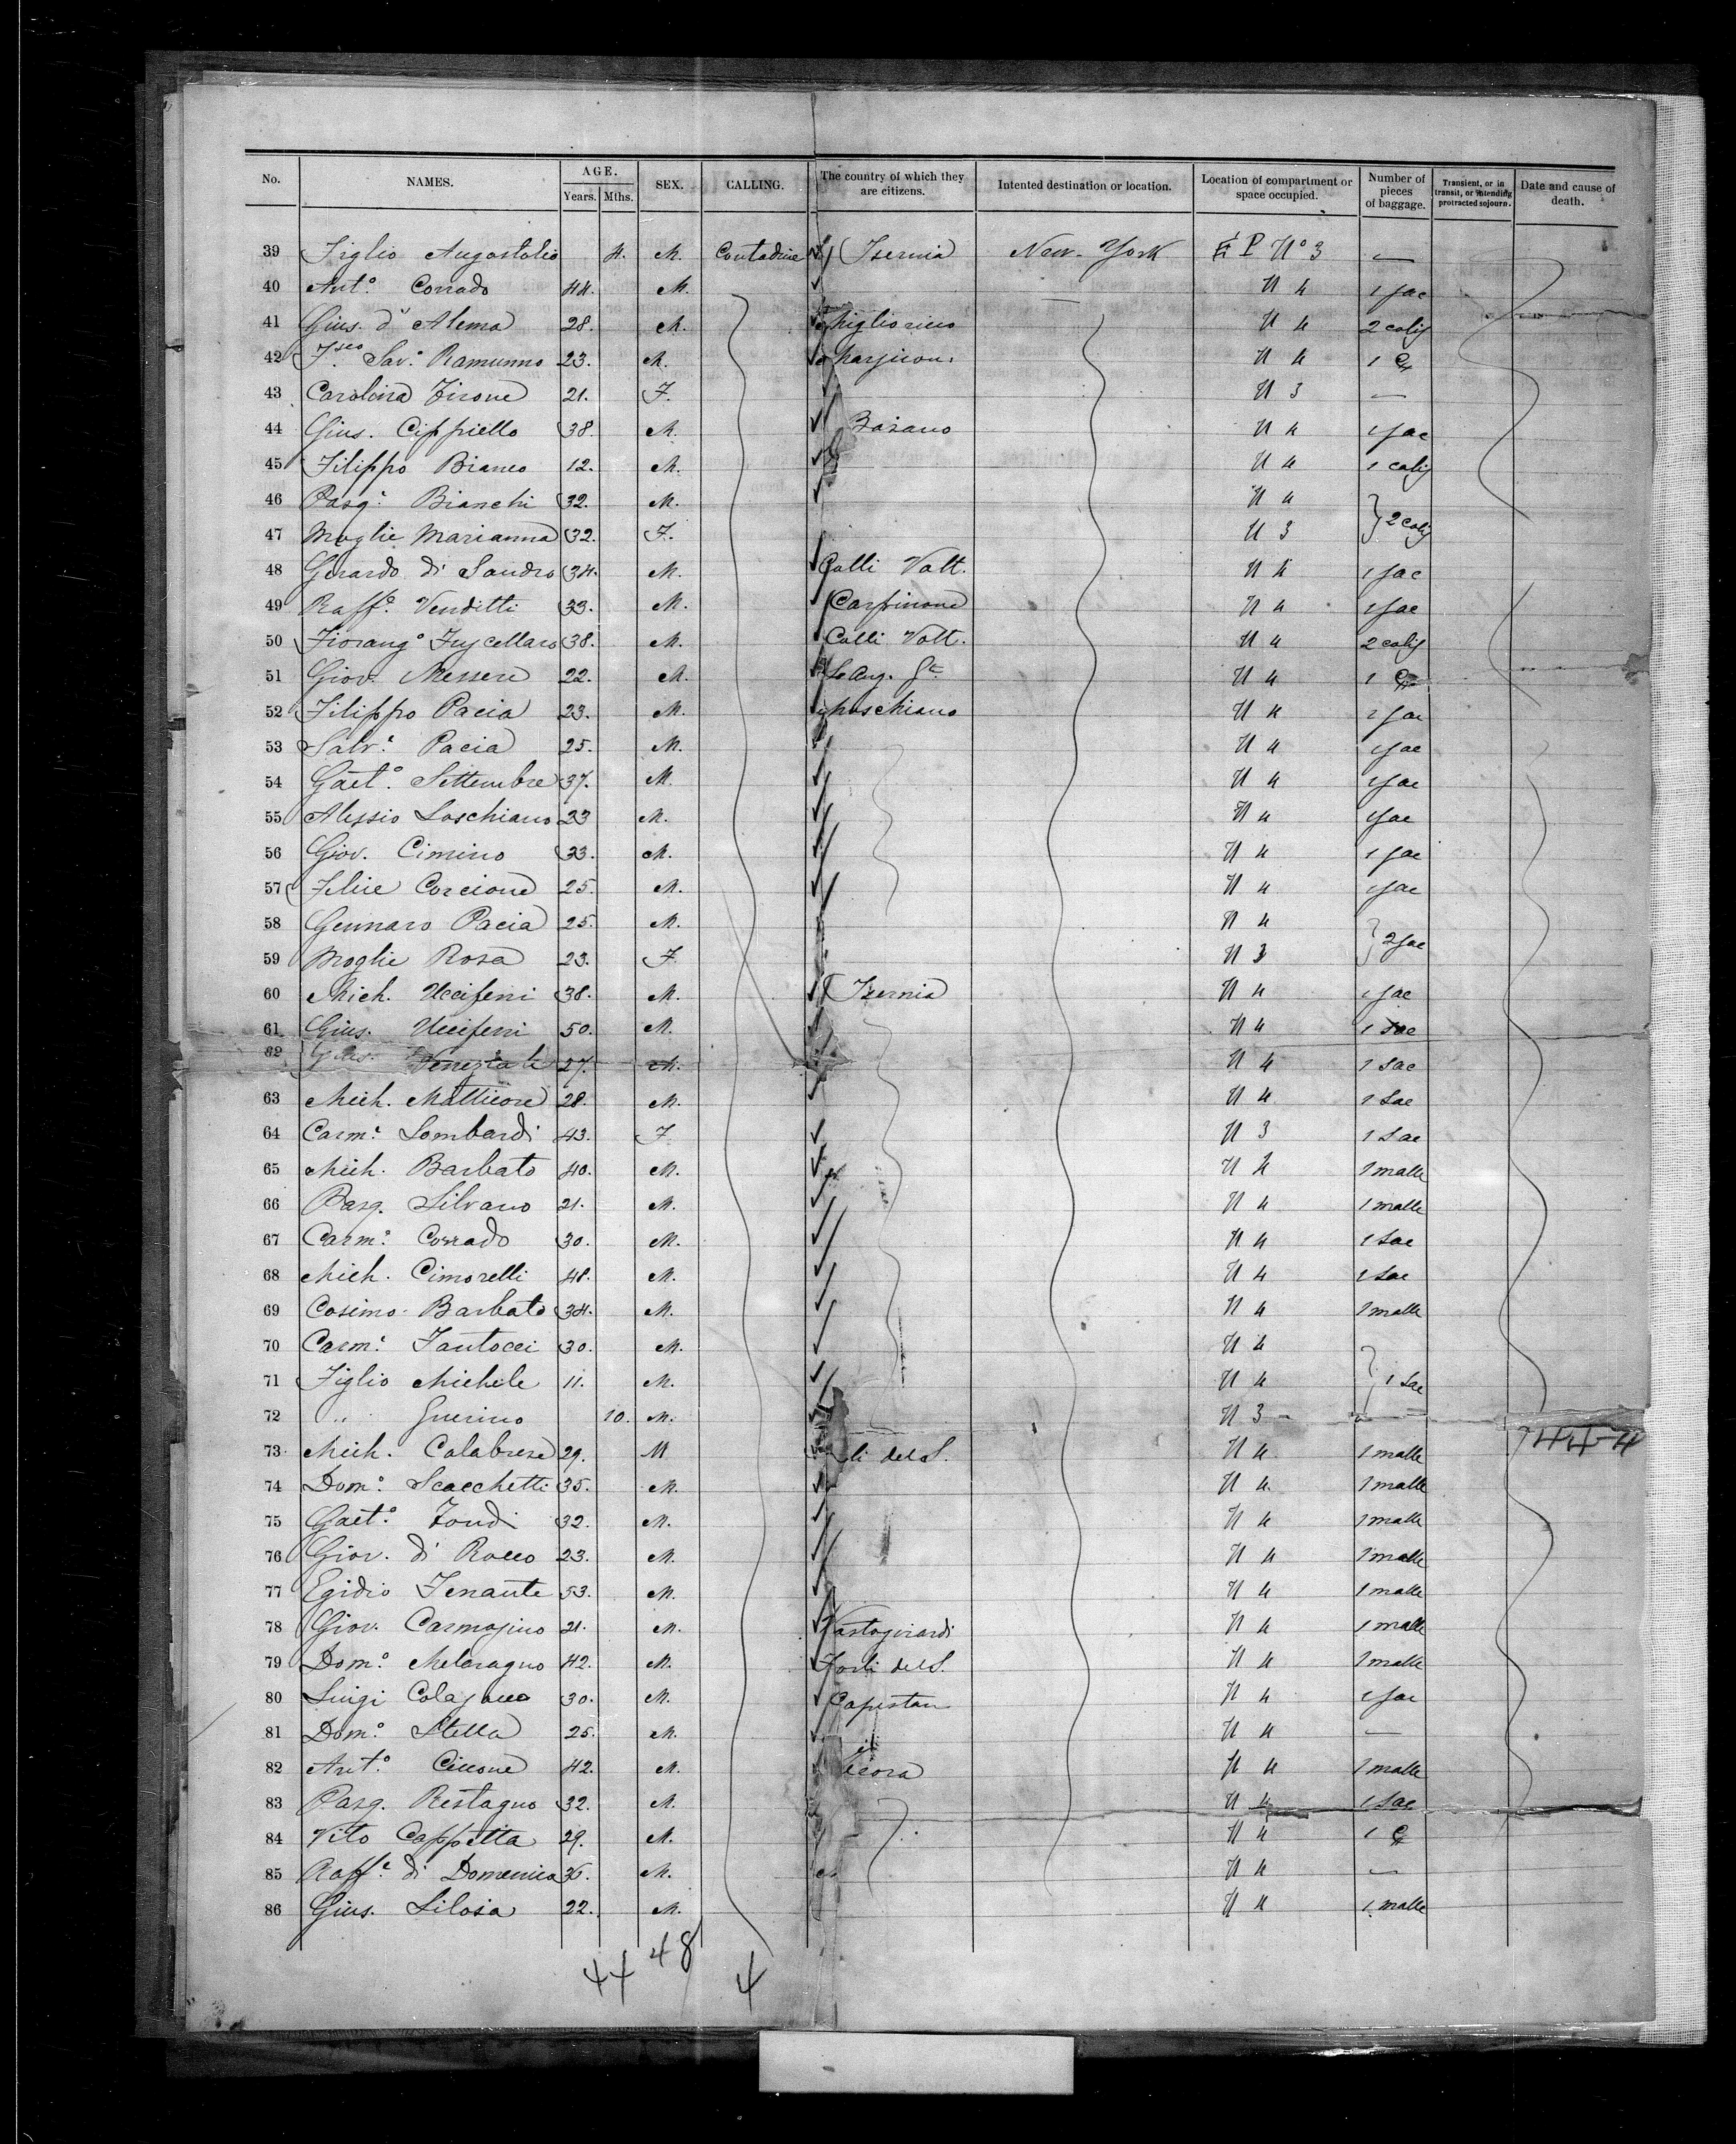 No. NAMES. AGE. Years. Mths. SEX. CALLING. The country of which they are citizens. Intented destination or location. Location of compartment or space occupied. Number of pieces of baggage. Transient, or in transit, or intending protracted sojourn. Date and cause of death.
39 Figlio Augostolio 4. M. Contadine Isernia New-York P N° 3 —
40 Ant.° Corrado 44. M. N 4 1 sac
41 Gius. d'Alema 28. M. N 4 2 colis
42 F.sco Sav.° Ramunno 23. M. N 4 1 C
43 Carolina Tirone 21. F. N 3 —
44 Gius. Cippiello 38. M. Bojano N 4 1 sac
45 Filippo Bianco 12. M. N 4 1 colis
46 Pasq.e Bianchi 32. M. N 4 2 colis
47 Moglie Marianna 32. F. N 3
48 Gerardo di Sandro 34. M. Colli Volt. N 4 1 sac
49 Raff.e Venditti 33. M. Carpinone N 4 1 sac
50 Fiorang.° Fuscellaro 38. M. Colli Volt. N 4 2 colis
51 Giov. Messere 22. M. N 4 1 C
52 Filippo Pacia 23. M. N 4 1 sac
53 Salv.e Pacia 25. M. N 4 1 sac
54 Gaet.° Settembre 37. M. N 4 1 sac
55 Alessio Loschiavo 23 M. N 4 1 sac
56 Giov. Cimino 33. M. N 4 1 sac
57 Felice Corcione 25. M. N 4 1 sac
58 Gennaro Pacia 25. M. N 4 2 sac
59 Moglie Rosa 23. F. N 3
60 Mich. Ucciferri 38. M. Isernia N 4 1 sac
61 Gius. Ucciferri 50. M. N 4 1 sac
62 Gius. Veneziale 27. M. N 4 1 sac
63 Mich. Matticore 28. M. N 4 1 sac
64 Carm.e Lombardi 43. F. N 3 1 sac
65 Mich. Barbato 40. M. N 4 1 malle
66 Pasq. Silvano 21. M. N 4 1 malle
67 Carm.e Corrado 30. M. N 4 1 sac
68 Mich. Cimorelli 48. M. N 4 1 sac
69 Cosimo Barbato 34. M. N 4 1 malle
70 Carm.e Fantocci 30. M. N 4 1 sac
71 Figlio Michele 11. M. N 4
72 " Guerino 10. M. N 3
73 Mich. Calabrese 29. M li del S. N 4 1 malle 744-4
74 Dom.° Scacchetti 35. M. N 4 1 malle
75 Gaet.° Tondi 32. M. N 4 1 malle
76 Giov. di Rocco 23. M. N 4 1 malle
77 Egidio Tenante 53. M. N 4 1 malle
78 Giov. Carmosino 21. M. Vastogirardi N 4 1 malle
79 Dom.° Melaragno 42. M. Forli del S. N 4 1 malle
80 Luigi Colajacco 30. M. Capestan N 4 1 sac
81 Dom.° Stella 25. M. N 4 —
82 Ant.° Ciccone 42. M. N 4 1 malle
83 Pasq. Restagno 32. M. N 4 1 sac
84 Vito Cappetta 29. M. N 4 1 C
85 Raff.e di Domenico 36. M. N 4 —
86 Gius. Silosa 22. M. N 4 1 malle
44 48 4